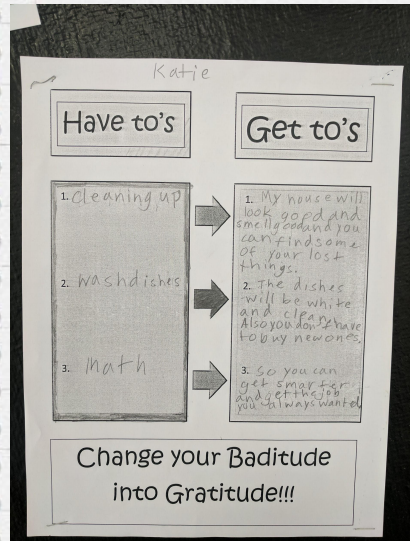 Katie
Have to's
Get to's
1. Cleaning up
1. My house will
look good and
smell good and you
can find some
of your lost
things.
2. wash dishes
2. The dishes
will be white
and clean
Also you don't have
to buy new ones.
3. math
3. So you can
get smarter
and get the job
you always wanted
Change your Baditude
into Gratitude!!!